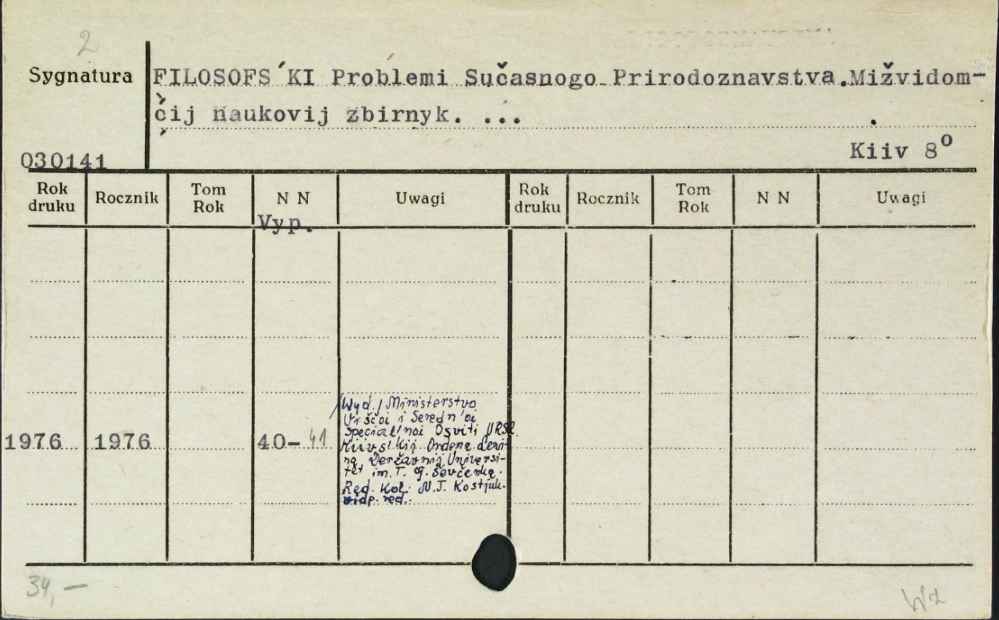 2
Sygnatura
FILOSOFS´KI Problemi Sučasnogo Prirodoznavstva. Mižvidom-
čij naukovij zbirnyk. ... .
Kiiv 8o
030141
Rok druku Rocznik Tom Rok N N Uwagi Rok druku Rocznik Tom Rok N N Uwagi
Vyp.
/Wyd./ Ministerstvo
Viščoi i Seredn'oi
Special'noi Osviti URSR
1976 1976 40-41
Kiivs'kij Ordena Leni-
na Deržavnij Universi-
tet im. T. G. Ševčenka.
Red. Kol. N.J. Kostjuk.
vidp. red.
34,-